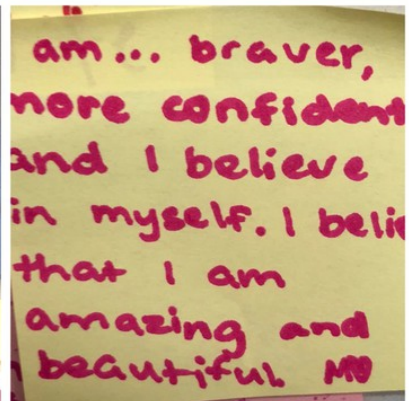 am... braver,
more confident
and I believe
in myself. I belie
that I am
amazing and
beautiful